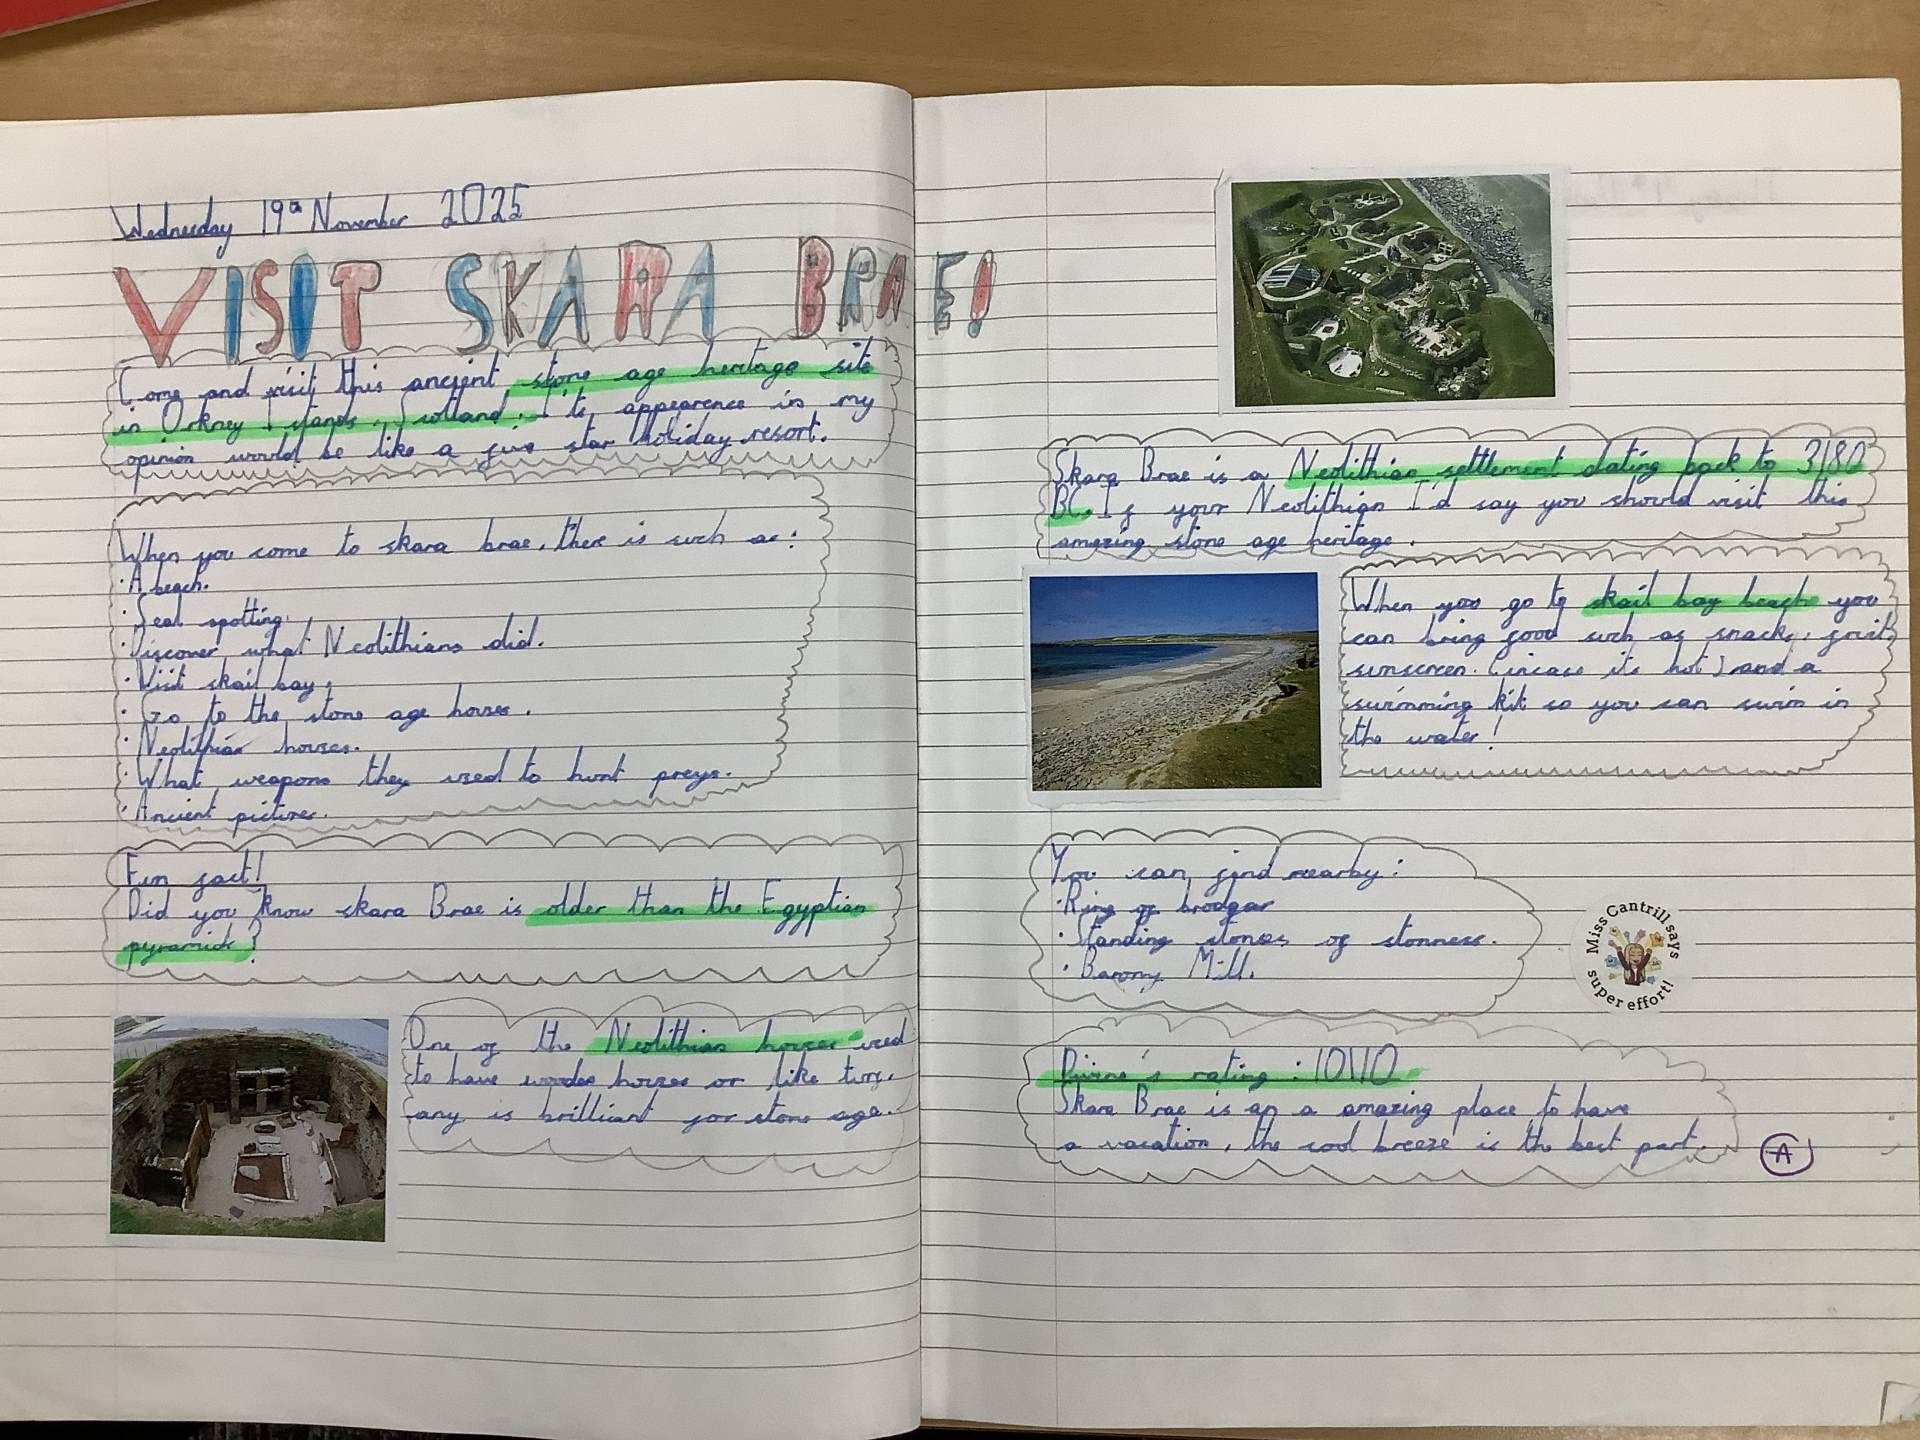 Wednesday 19th November 2025
VISIT SKARA BRAE!
Come and visit this ancient stone age heritage site
in Orkney Islands, Scotland. It's appearence in my
opinion would be like a five star holiday resort.
When you come to skara brae, there is such as:
· A beach.
· Seal spotting.
· Discover what Neolithians did.
· Visit skail bay.
· Go to the stone age houses.
· Neolithian houses.
· What weapons they used to hunt preys.
· Ancient pictures.
Fun fact!
Did you know skara Brae is older than the Egyptian
pyramids?
One of the Neolithian houses used
to have wooden houses or like
any is brilliant for stone age.
Skara Brae is a Neolithian settlement dating back to 3180
BC. If your Neolithian I'd say you should visit this
amazing stone age heritage.
When you go to skail bay beach you
can bring food such as snacks, fruit,
sunscreen. (incase its hot) and a
swimming kit so you can swim in
the water!
You can find nearby:
· Ring of brodgar
· Standing stones of stonness.
· Barony Mill.
Miss Cantrill says
super effort!
rating: 10/10
Skara Brae is an a amazing place to have
a vacation, the cool breeze is the best part
A